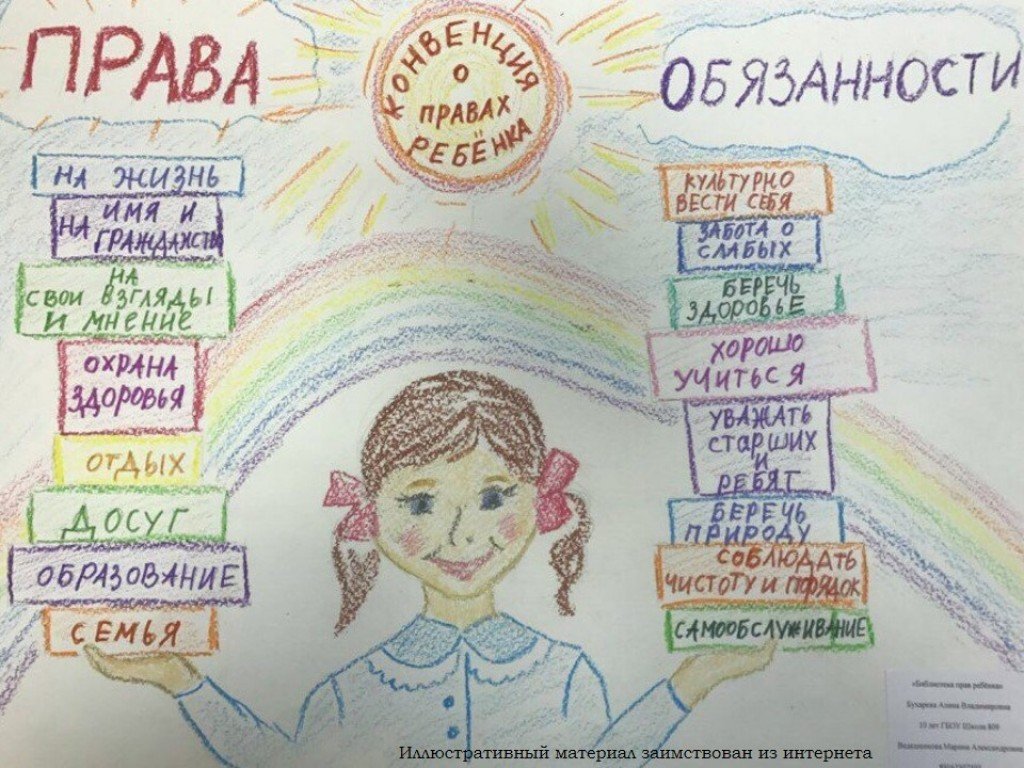 ПРАВА
КОНВЕНЦИЯ
О
ПРАВАХ
РЕБЁНКА
ОБЯЗАННОСТИ
НА ЖИЗНЬ
НА ИМЯ И
ГРАЖДАНСТВ
НА
СВОИ ВЗГЛЯДЫ
И МНЕНИЕ
ОХРАНА
ЗДОРОВЬЯ
ОТДЫХ
ДОСУГ
ОБРАЗОВАНИЕ
СЕМЬЯ
КУЛЬТУРНО
ВЕСТИ СЕБЯ
ЗАБОТА О
СЛАБЫХ
БЕРЕЧЬ
ЗДОРОВЬЕ
ХОРОШО
УЧИТЬСЯ
УВАЖАТЬ
старших
И
РЕБЯТ
БЕРЕЧЬ
ПРИРОДУ
СОБЛЮДАТЬ
ЧИСТОТУ И ПОРЯДОК
САМООБСЛУЖИВАНИЕ
«Библиотека прав ребёнка»
Бухарева Алина Владимировна
10 лет ГБОУ Школа 809
Марина Александровна
Иллюстративный материал заимствован из интернета